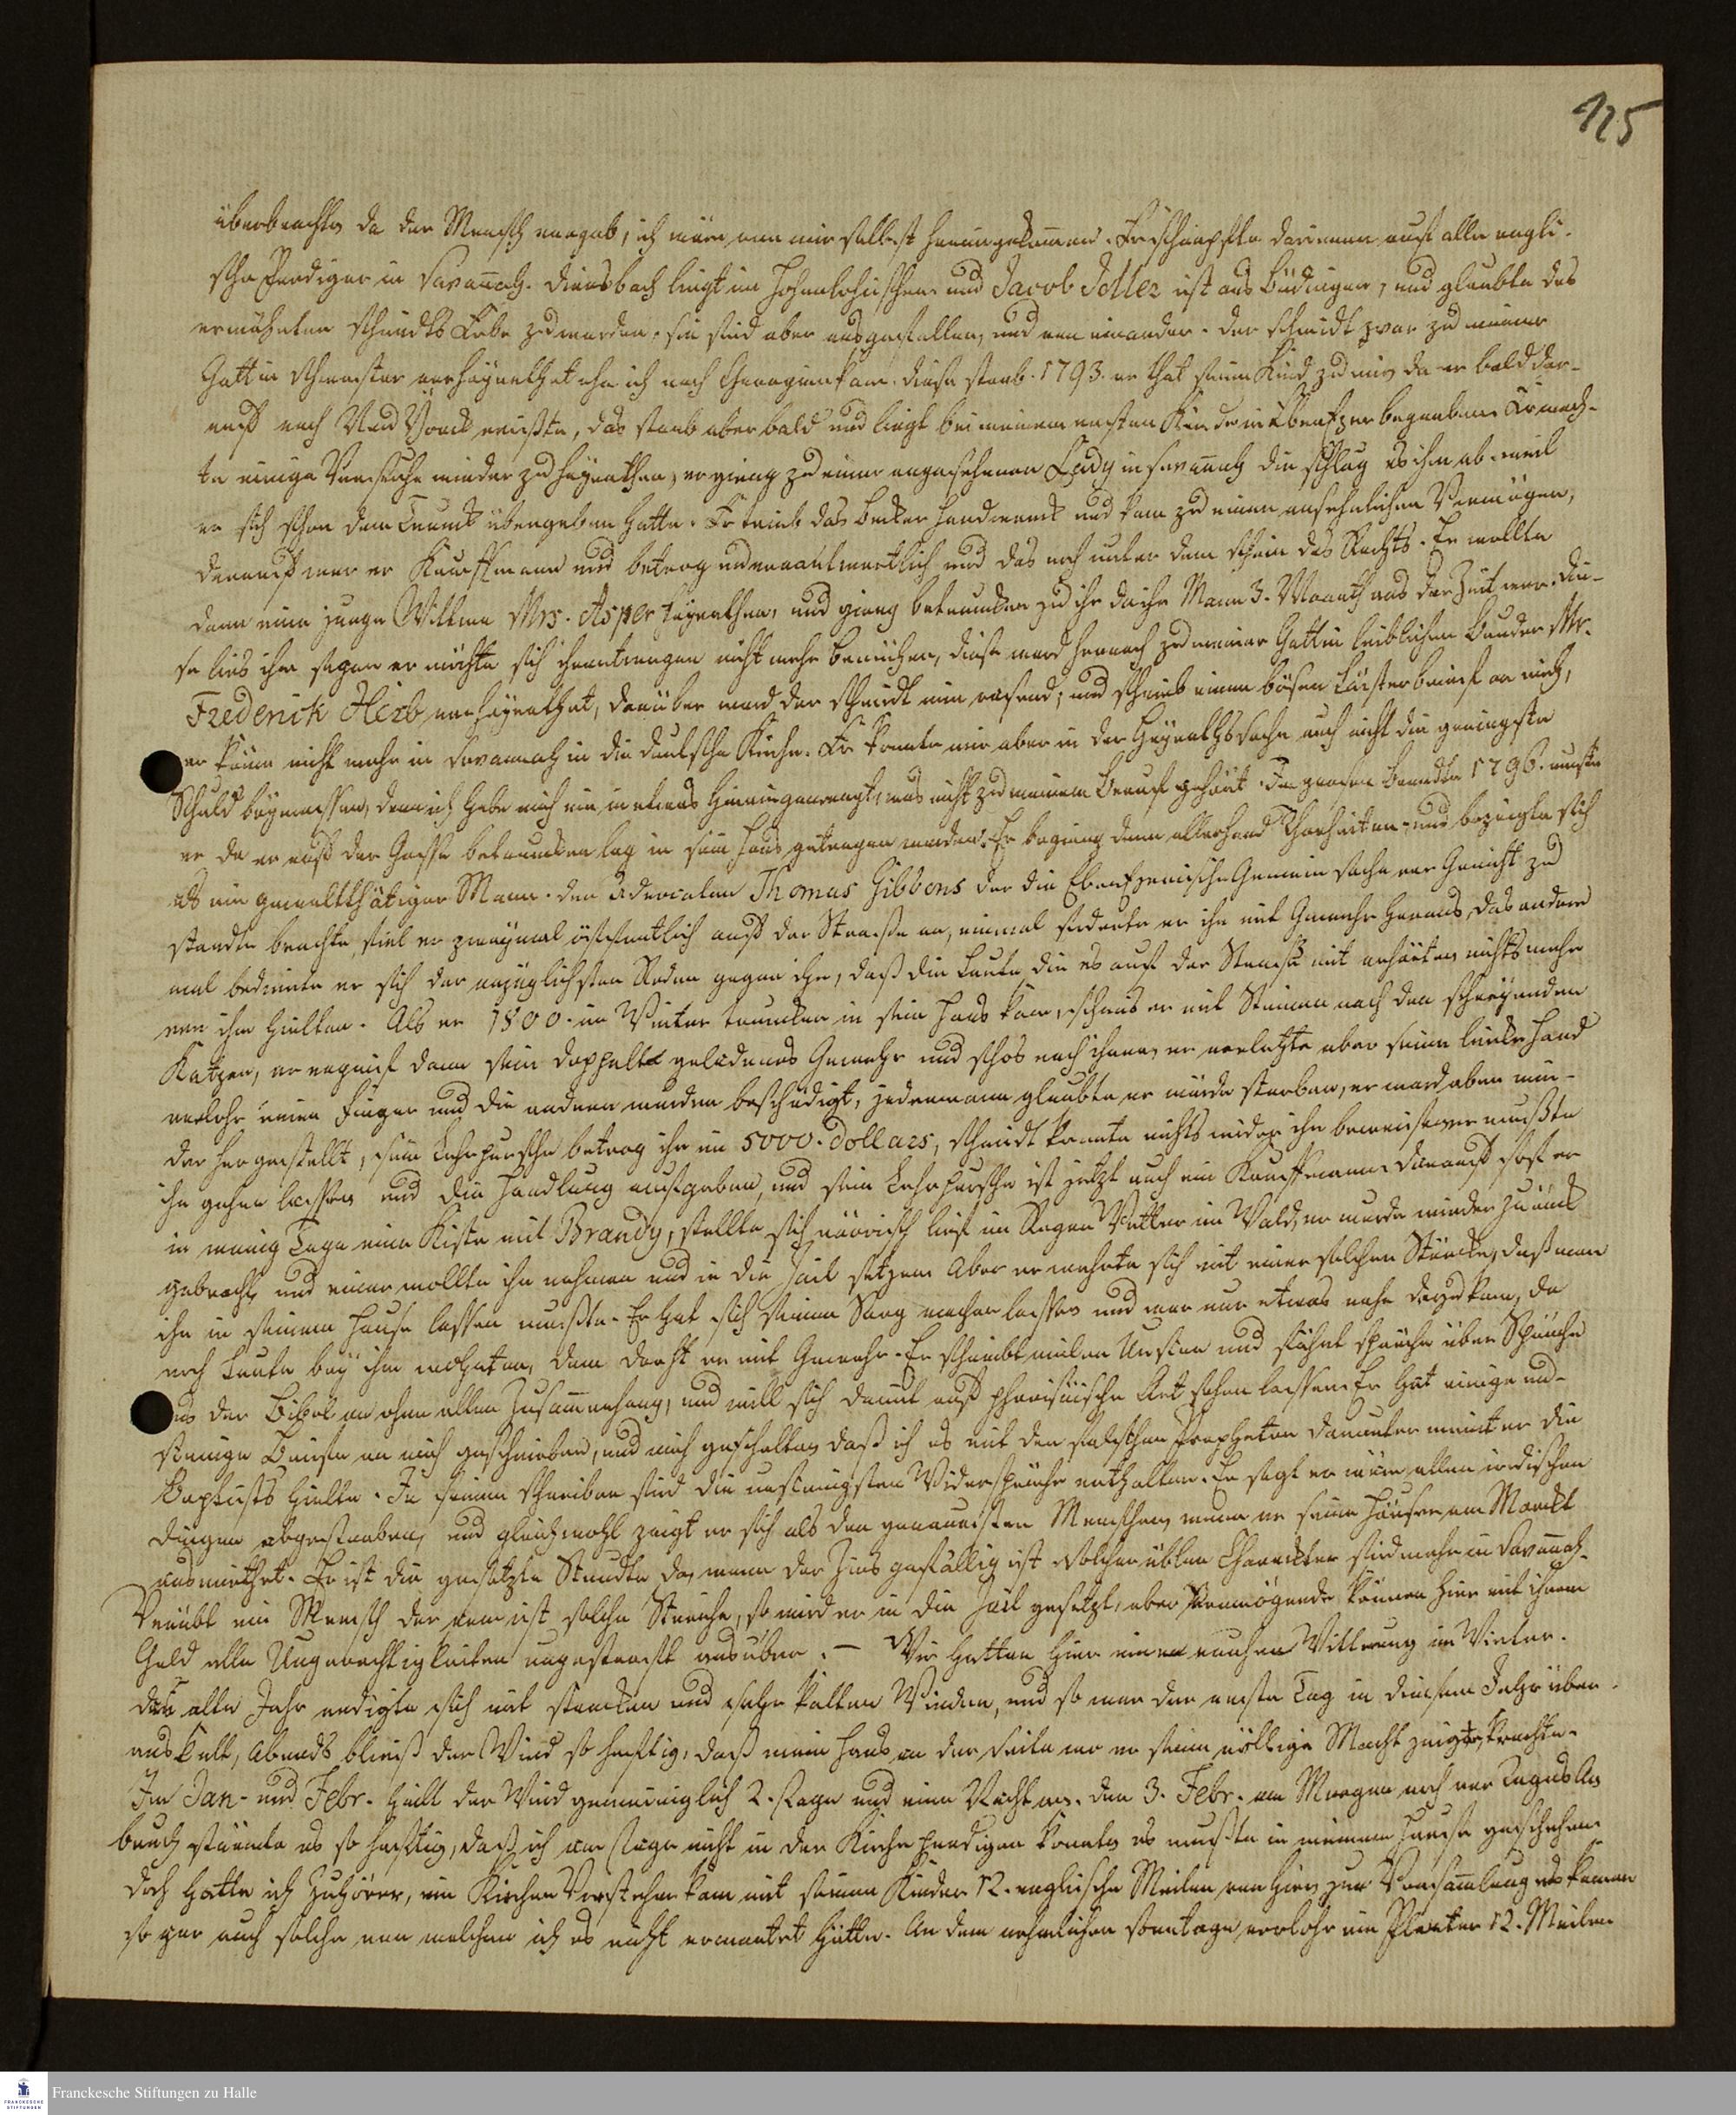 125
überbrachte, da der Mensch vorgab, ich wäre von mir selbst herumgekommen. Er schimpfte darinnen auf alle engli-
sche Prediger in Savannah. Diersbach liegt im Hohenlohischen und Jacob Idler ist aus Büdingen, und glaubte des
erwähnten Schmidts Erbe zu werden, sie sind aber ausgefallen, und von einander. Der Schmidt zwar zu meiner
Gattin Schwester verheyrathet ehe ich nach Georgien kam. diese starb 1793. er that sein Kind zu mir, da er bald dar-
auf nach Neu Yorck reißte, das starb aber bald und liegt bei meinem ersten Kinde in Ebenezer begraben. Er mach-
te einige Versuche wieder zu heyrathen, er gieng zu einer angesehenen Lady in Savannah die schlug es ihm ab, weil
er sich schon dem Trunck übergeben hatte. Er trieb das Becker Handwerck und kam zu einem ansehnlichen Vermögen,
darauf war er Kauffmann und betrog unverantwortlich und das noch unter dem Schein des Rechts. Er wollte
dann eine junge Wittwe Mrs. Asper heyrathen, und gieng betruncken zu ihr da ihr Mann 3. Monath aus der Zeit war. die-
se lies ihm sagen er möchte sich ihrentwegen nicht mehr bemühen, diese ward hernach zu meiner Gattin leiblichen Bruder Mr.
Frederick Herb verheyrathet, darüber ward der Schmidt nun rasend, und schrieb einen bösen Lästerbrief an mich,
er käme nicht mehr in Savannah in die deutsche Kirche. Er konnte mir aber in der Heyrathssache auch nicht die geringste
Schuld beymessen, denn ich habe mich nie in etwas hineingemengt, was nicht zu meinem Beruf gehört. Im großen Brandte 1796. muste
er da er auf der Gasse betruncken lag in sein Haus getragen werden. Er beging dann allerhand Thorheiten, und bezeigte sich
als ein gewaltthätiger Mann. den Advocaten Thomas Gibbons der die Ebenezerische Gemein Sache vor Gericht zu
stande brachte, fiel er zweymal öffentlich auf der Straße an, einmal foderte er ihn mit Gewehr heraus, das andere
mal bediente er sich der anzüglichsten Reden gegen ihn, daß die Leute die es auf der Straße mit anhörten nichts mehr
von ihm hielten. Als er 1800. im Winter truncken in sein Haus kam, schmis er mit Steinen nach den schreyenden
Katzen, er ergrief dann sein doppelt geladenes Gewehr und schos nach ihnen, er verletzte aber seine lincke Hand
verlohr einen Finger und die andern wurden beschädigt, jedermann glaubte er würde sterben, er ward aber wie-
der hergestellt, sein Lehrpursche betrog ihn um 5000. Dollars, Schmidt konnte nichts wider ihn beweisen er mußte
ihn gehen lassen und die Handlung aufgeben, und sein Lehrpursche ist jetzt auch ein Kauffmann. darauf sof er
in wenig Tage eine Kiste mit Brandy, stellte sich närrisch lief im Regen Wetter im Wald, er wurde wieder zurück
gebracht, und einer wollte ihn nehmen und in die Jail setzen. Aber er wehrte sich mit einer solchen Stärcke, daß man
ihn in seinem Hause lassen mußte. Er hat sich seinen Sarg machen lassen und wer nur etwas nahe dazu kam, da
noch Leute bey ihm wohnten, dem droht er mit Gewehr. Er schreibt vielen Unsinn und führt Sprüche über Sprüche
aus der Bibel an ohne allen Zusammenhang, und will sich damit auf pharisäische Art sehen lassen. Er hat einige un-
sinnige Briefe an mich geschrieben, und mich gescholten, daß ich es mit den falschen Propheten darunter meint er die
Baptists hielte. In seinem Schreiben sind die unsinnigsten Widersprüche enthalten. Er sagt er wäre allen irdischen
Dingen abgestorben, und gleichwohl zeigt er sich als den genauesten Menschen, wenn er seine Häuser am Marckt
ausmiethet. Er ist die gesetzte Stunde da, wenn der Zins gefällig ist. Solcher üblen Charackter sind mehr in Savannah.
Verübt ein Mensch der arm ist solche Streiche, so wird er in die Jail gesetzt, aber Vermögende können hier mit ihrem
Geld alle Ungerechtigkeiten ungestraft ausüben. — Wir hatten hier einen rauhen Witterung im Winter.
das alte Jahr endigte sich mit starcken und sehr kalten Winden, und so war der erste Tag in diesem Jahr über-
aus kalt, Abends bließ der Wind so heftig, daß mein Haus an der Seite wo er seine völlige Macht zeigte, krachte.
Im Jan- und Febr. hielt der Wind gemeiniglich 2. Tage und eine Nacht an. den 3. Febr. am Morgen noch vor Tages An
bruch stürmte es so heftig, daß ich am Tage nicht in der Kirche predigen konnte, es mußte in meinem Hause geschehen.
doch hatte ich Zuhörer, ein Kirchen Vorsteher kam mit seinen Kinder 12. englische Meilen von hier zur Versammlung es kamen
so gar auch solche von welchen ich es nicht erwartet hätte. An dem nehmlichen Sonntage verlohr ein Planter 12. Meilen
Franckesche Stiftungen zu Halle
FRANCKESCHE
STIFTUNGEN